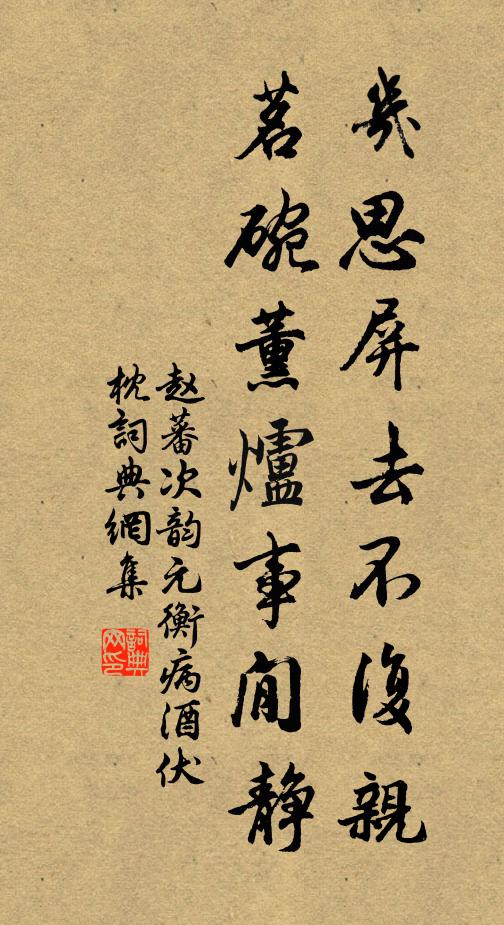 幾思屏去不復親
茗碗薰爐事閒静
赵蕃次韵元衡病酒伏
枕詞典網集
詞典網印